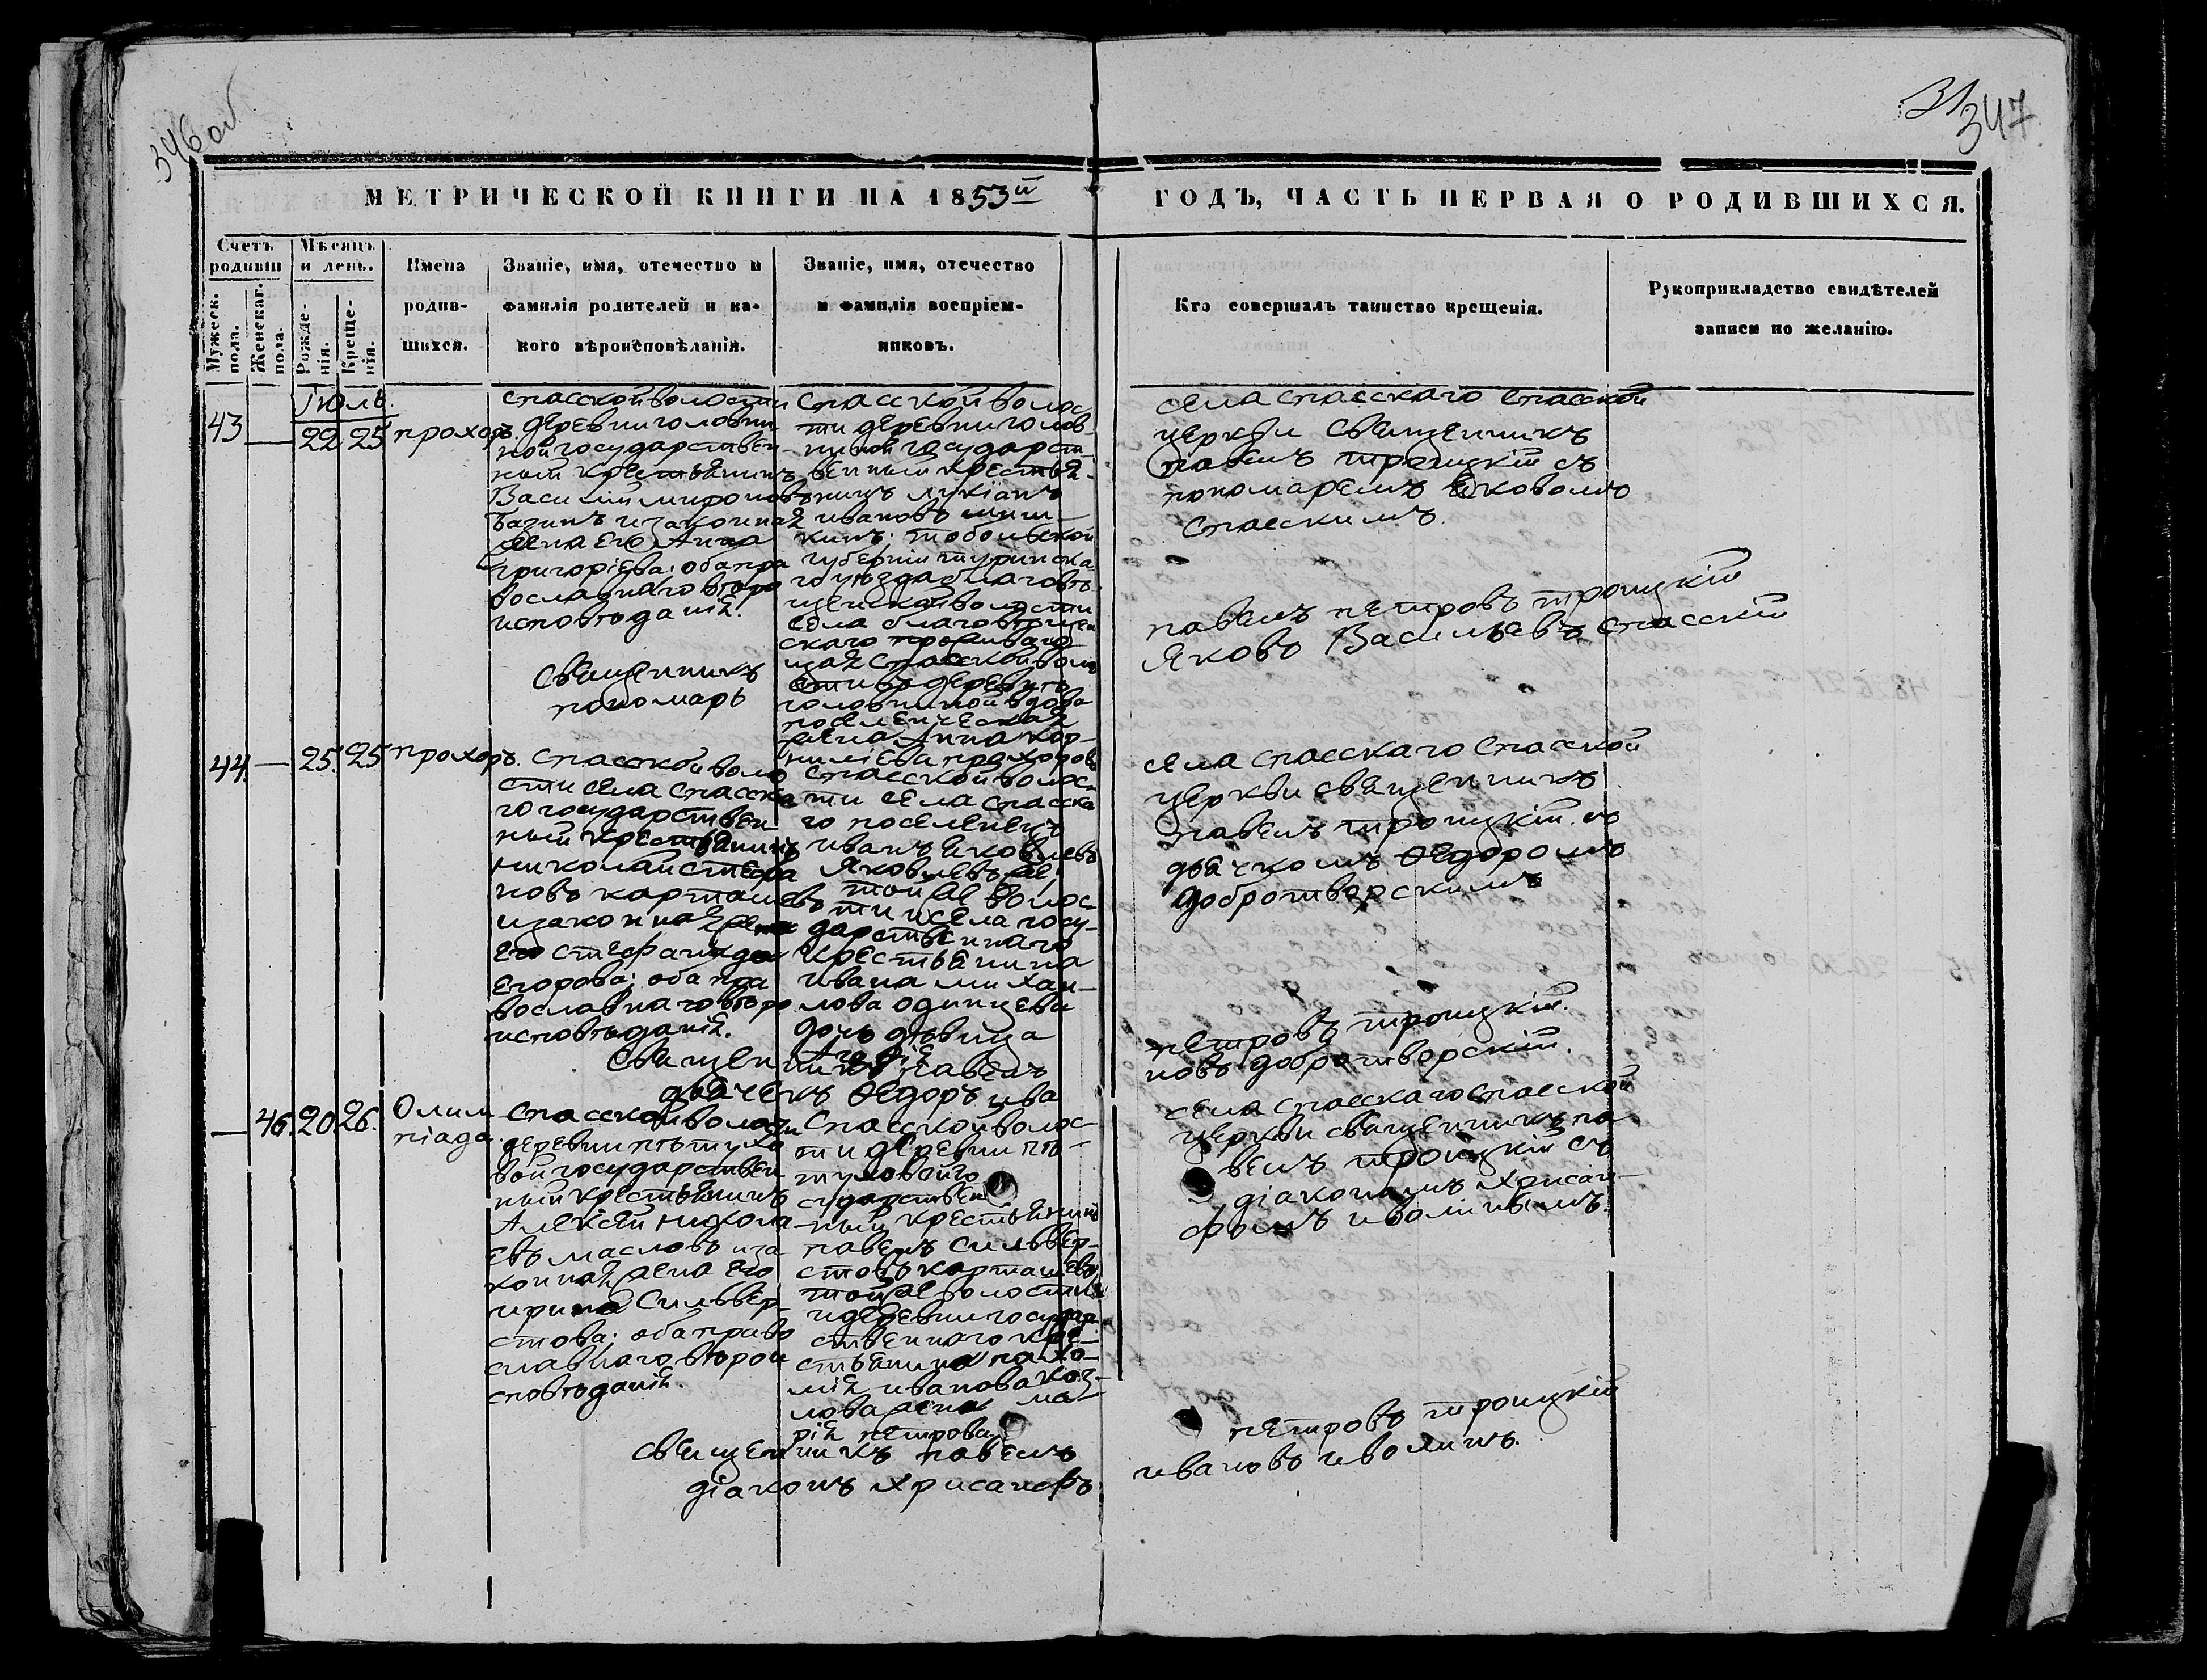 346 об
31
347
МЕТРИЧЕСКОЙ КНИГИ НА 1853й
ГОДЪ, ЧАСТЬ ПЕРВАЯ О РОДИВШИХСЯ.
Счетъ родивш
Мужеск. пола.
Женскаг. пола.
Мѣсяцъ и день.
Рожде-нія.
Креще-нія.
Имена
родив-
шихся.
Званіе, имя, отечество и
фамилія родителей и ка-
кого вѣроисповѣданія.
Званіе, имя, отечество
и фамилія воспріем-
никовъ.
Кто совершалъ таинство крещенія.
Рукоприкладство свидѣтелей
записи по желанію.
Іюль.
43 — 22 25 прохоръ.
спасской волости
деревни головни
ной государствен
ный крестьянинъ
Василій мироновъ
Базинъ и законная
жена его Анна
григорієва: оба пра
вославнаго вѣро
исповѣданія.
Спасской волос
ти деревни голов
ниной государст
венный крестья-
нинъ лукіанъ
ивановъ шиш
кинъ: тобольской
губерніи туринска
го уѣзда благовѣ
щенской волости
села благовѣщен
скаго проживаю
щая спасской воло
сти въ деревнѣ
головниной вдова
поселенческая
жена Анна кор-
ниліева прохорова
села спасскаго спасской
церкви священникъ
павелъ троицкій съ
пономаремъ Яковомъ
Спасскимъ.
Священникъ
павелъ петровъ троицкій
пономарь
Яковъ Васильевъ спасскій
44. — 25. 25 прохоръ.
Спасской воло
сти села спасска
го государствен
ный крестьянинъ
николай стефа
новъ карташевъ
и законная жена
его стефанида
егорова: оба пра
вославнаго вѣро
исповѣданія.
спасской волос-
ти села спасска
го поселенецъ
иванъ яковлевъ
Яковлевъ же,
той же волос-
ти и села госу-
дарственнаго
крестьянина
ивана михаи-
лова одинцева
дочь дѣвица
села спасскаго спасской
церкви священникъ
павелъ троицкій. съ
дьячкомъ Ѳедоромъ
добротворскимъ
Священникъ павелъ
петровъ троицкій.
дьячекъ Ѳедоръ ива
новъ добротворскій.
— 46. 20. 26. Олим
піада.
Спасской волости
деревни пѣтухо
вой государствен
ный крестьянинъ
Алексѣй никола
евъ масловъ и за
конная жена его
ирина Сильвер-
стова: оба право
славнаго вѣрои
сповѣданія.
Спасской волос-
ти деревни пѣ-
туховой го
сударствен
ный крестьянинъ
павелъ сильвер-
стовъ карташевъ
той же волости
и деревни государ
ственнаго кре-
стьянина пахо-
мія иванова коз-
лова жена ма-
рія петрова.
села спасскаго спасской
церкви священникъ па-
велъ троицкій съ
діакономъ хрисан-
фомъ иволинымъ.
священникъ павелъ
петровъ троицкій
діаконъ хрисанфъ
ивановъ иволинъ.